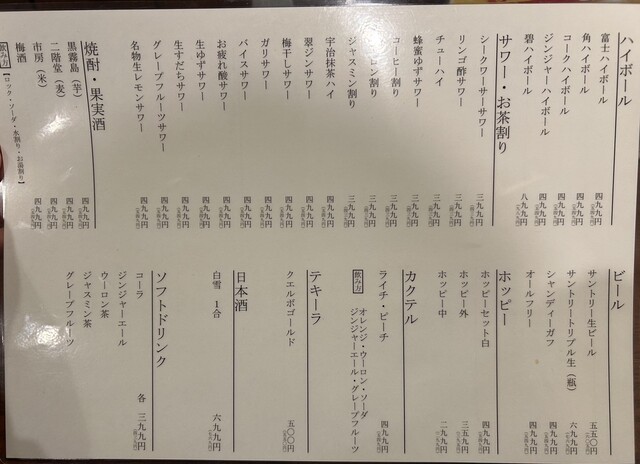 ハイボール
富士ハイボール 四九九円
角ハイボール 四九九円
コークハイボール 四九九円
ジンジャーハイボール 四九九円
碧ハイボール 八九九円
サワー・お茶割り
シークワーサーサワー 三九九円
リンゴ酢サワー 三九九円
チューハイ 三九九円
蜂蜜ゆずサワー 三九九円
コーヒー割り 三九九円
ロン割り 三九九円
ジャスミン割り 三九九円
宇治抹茶ハイ 四九九円
翠ジンサワー 四九九円
梅干しサワー 四九九円
ガリサワー 四九九円
バイスサワー 四九九円
お疲れ酸サワー 四九九円
生ゆずサワー 四九九円
生すだちサワー 四九九円
グレープフルーツサワー 四九九円
名物生レモンサワー 四九九円
焼酎・果実酒
黒霧島（芋） 四九九円
二階堂（麦） 四九九円
市房（米） 四九九円
梅酒 四九九円
飲み方【ロック・ソーダ・水割り・お湯割り】
ビール
サントリー生ビール 五五〇円
サントリートリプル生（瓶） 六九九円
シャンディーガフ 四九九円
オールフリー 四九九円
ホッピー
ホッピーセット白 四九九円
ホッピー外 三五九円
ホッピー中 二九九円
カクテル
ライチ・ピーチ 四九九円
飲み方 オレンジ・ウーロン・ソーダ
ジンジャーエール・グレープフルーツ
テキーラ
クエルボゴールド 五〇〇円
日本酒
白雪 1合 六九九円
ソフトドリンク
コーラ 各 三九九円
ジンジャーエール
ウーロン茶
ジャスミン茶
グレープフルーツ